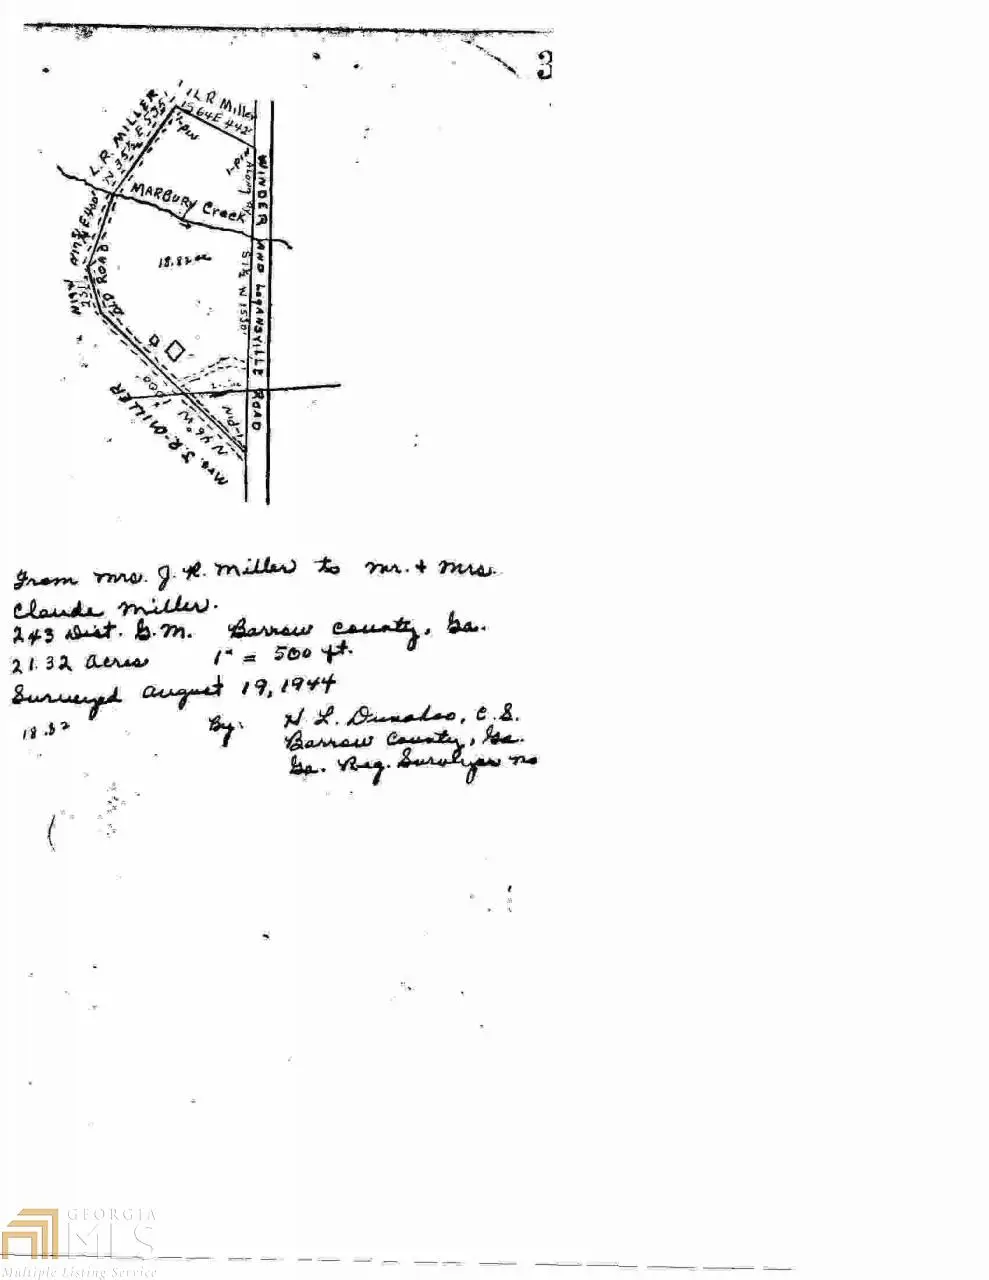 3
L R Miller
S 64 E 442'
L. R. MILLER
N 35½ E 535
1-PIN
1-PIN
MARBURY Creek
WINDER AND LOGANSVILLE ROAD
ALONG
S 1½ W 1530'
18.82 ac
E 400'
N 19 W
231
OLD ROAD
1000
N 46° W
1-PIN
Mrs. J. R. MILLER
From Mrs. J. R. Miller to Mr. + Mrs.
Claude Miller.
243 Dist. G. M. Barrow County, Ga.
21.32 Acres 1" = 500 ft.
Surveyed August 19, 1944
By: W. L. Dunahoo, C. S.
Barrow County, Ga.
Ga. Reg. Surveyor no
GEORGIA
MLS
Multiple Listing Service